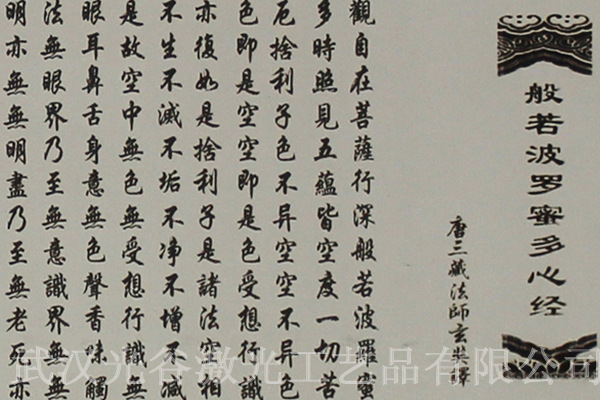 般若波罗蜜多心经
唐三藏法師玄奘譯
觀自在菩薩行深般若波羅蜜
多時照見五蘊皆空度一切苦
厄捨利子色不异空空不异色
色即是空空即是色受想行識
亦復如是捨利子是諸法空相
不生不滅不垢不净不增不減
是故空中無色無受想行識無
眼耳鼻舌身意無色聲香味觸
法無眼界乃至無意識界無無
明亦無無明盡乃至無老死亦
武汉光谷激光工艺品有限公司